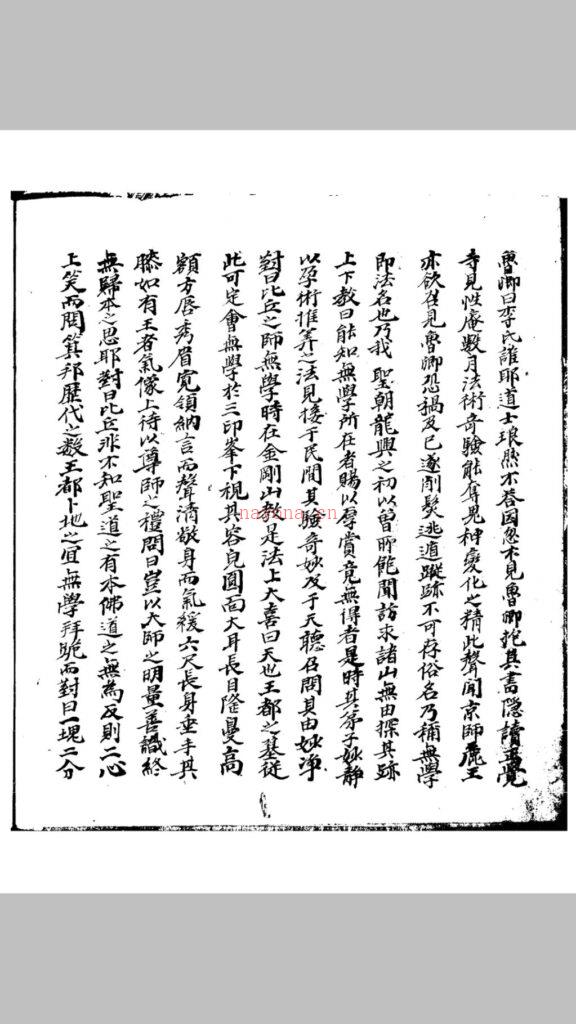 魯卿曰李氏誰耶道士琅然不答因忽不見魯卿抱其書隱讀玉覺
寺見性庵數月法術奇驗能奪鬼神變化之精此聲聞京師麗王
亦欲召見魯卿恐禍及已遂削髮逃遁蹤跡不可存俗名乃稱無學
即法名也乃我 聖朝龍興之初以曾所飽聞訪求諸山無由探其跡
上下教曰能知無學所在者賜以厚賞竟無得者是時其弟子妙靜
以孕術推筭之法見接于民間其驗奇妙及于天聽召問其由妙淨
對曰比丘之師無學時在金剛山敎是法上大喜曰天也王都之基從
此可定會無學於三印峯下視其容皃圓面大耳長目隆曼高
額方唇秀眉寬領納言而聲清欹身而氣緩六尺長身垂手其
膝如有王者氣像上待以尊師之禮問曰豈以大師之明量善識終
無歸本之思耶對曰比丘非不知聖道之有本佛道之無為反則二心
上笑而問箕邦歷代之数王都卜地之宜無學拜跪而對曰一塊二分
nayona.cn